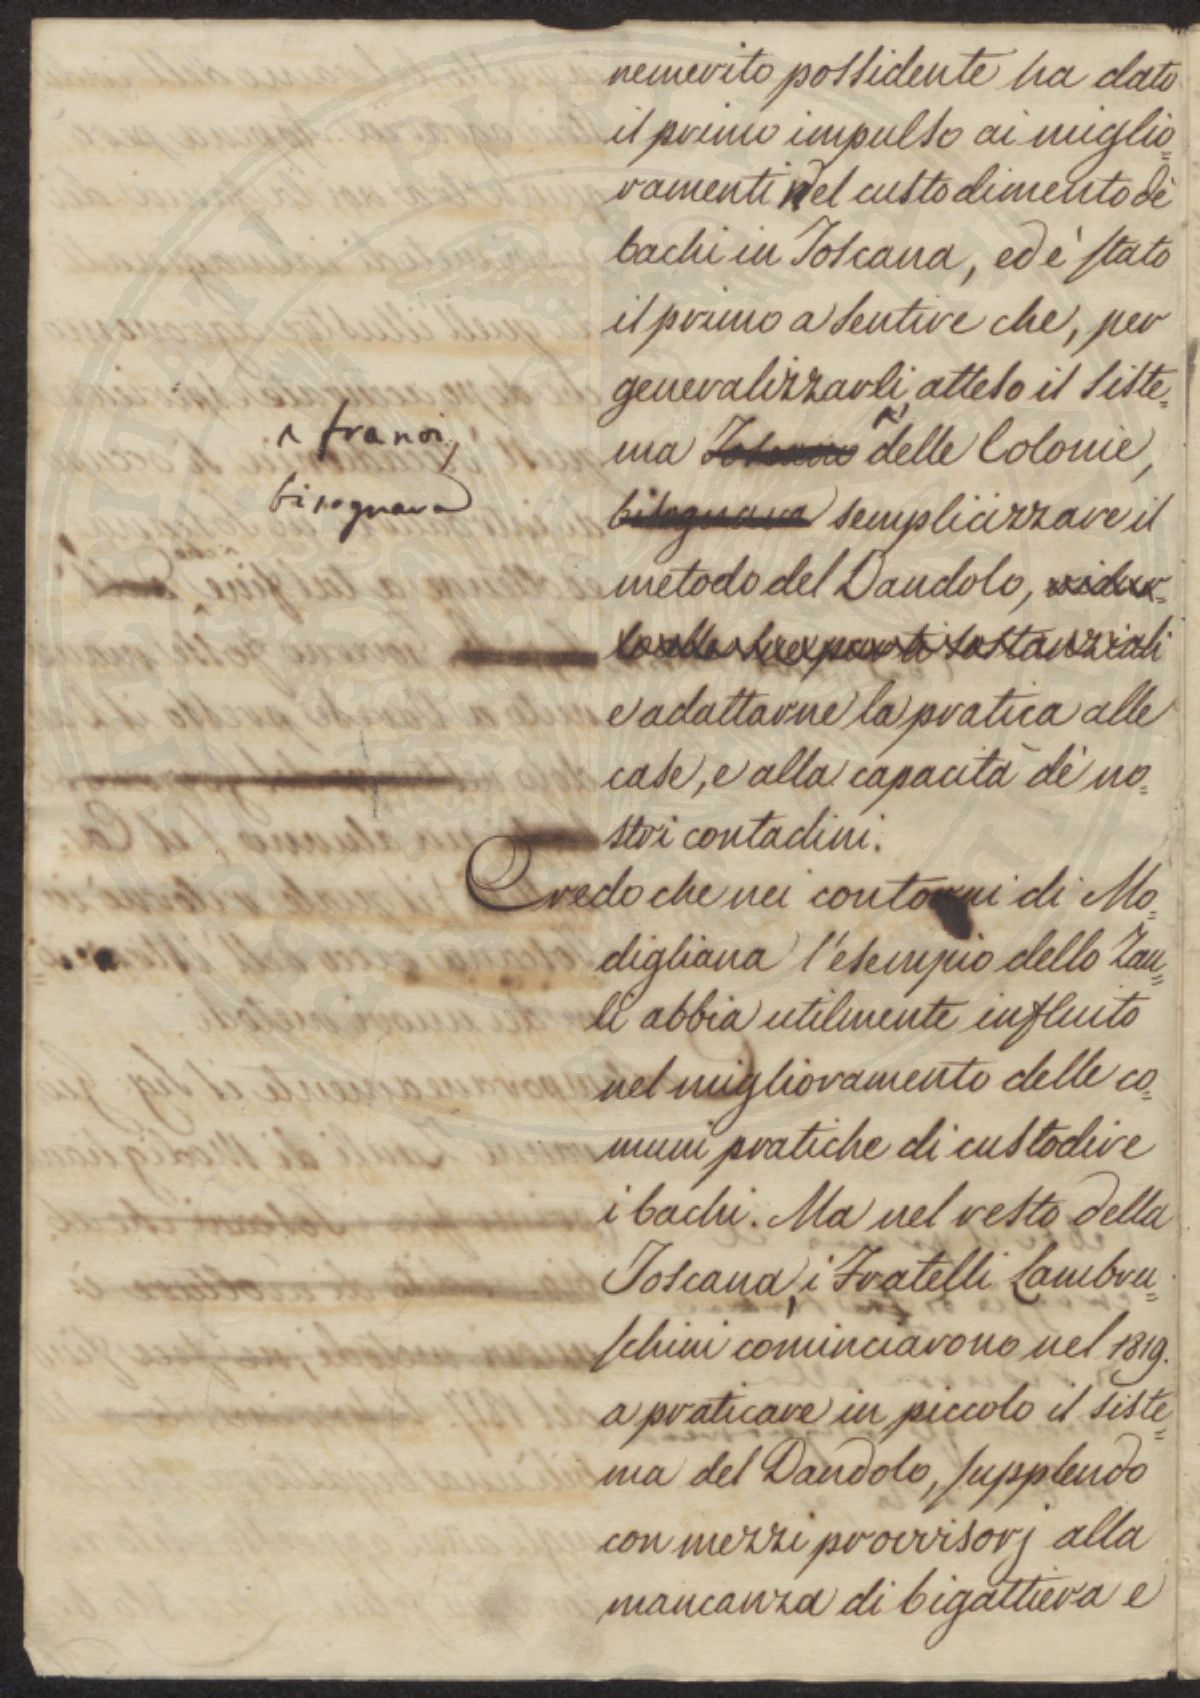 nemerito possidente ha dato
il primo impulso ai miglio=
ramenti nel custodimento de'
bachi in Toscana, ed è stato
il primo a sentire che, per
generalizzarli, atteso il siste=
ma Toscano delle Colonie,
^ franoi,
bisognava
bisognava semplicizzare il
metodo del Dandolo, ridur=
lo alle sue parti sostanziali
e adattarne la pratica alle
case, e alla capacità de' no=
stri contadini.
Credo che nei contorni di Mo=
digliana l'esempio dello Zau=
li abbia utilmente influito
nel miglioramento delle co=
muni pratiche di custodire
i bachi. Ma nel resto della
Toscana, i Fratelli Lambru=
schini cominciarono nel 1819.
a praticare in piccolo il siste=
ma del Dandolo, supplendo
con mezzi provvisorj alla
mancanza di bigattiera e